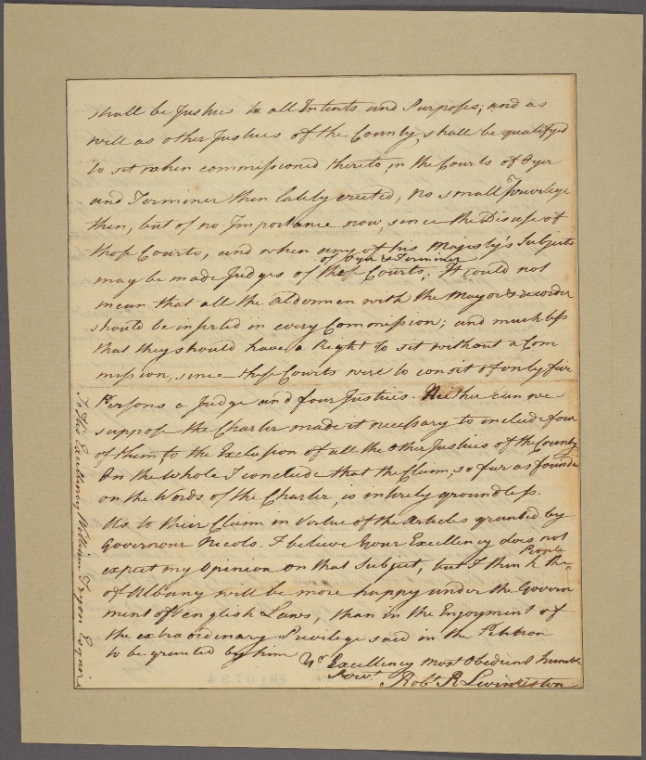 shall be Justices to all Intents and Purposes; and as
well as other Justices of the County, shall be qualifyed
to sit when commissioned thereto in the Courts of Oyer
and Terminer then lately erected, no small Priviledge
then, but of no Importance now, since the Disuse of
those Courts, and when any of his Majesty's Subjects
may be made Judges of those Courts of Oyer & Terminer; It could not
mean that all the Aldermen with the Mayor & recorder
should be inserted in every Commission; and much less
that they should have a Right to sit without a Com
mission, since those Courts were to consist of only five
Persons a Judge and four Justices. Neither can we
suppose the Charter made it necessary to include four
of them, to the Exclusion of all the other Justices of the County
On the whole I conclude that the Claim, so far as founded
on the Words of the Charter, is intirely groundless.
As to their Claim in Vertue of the Articles granted by
Governour Nicols. I believe Your Excellency does not
expect my Opinion on that Subject, but I think the People
of Albany will be more happy under the Govern
ment of english Laws, than in the Enjoyment of
the extraordinary Privilege said in the Petition
to be granted by him
Yr Excellency most Obedient humble
Servt
Robt R Livingston
To His Excellency William Tryon Esquire